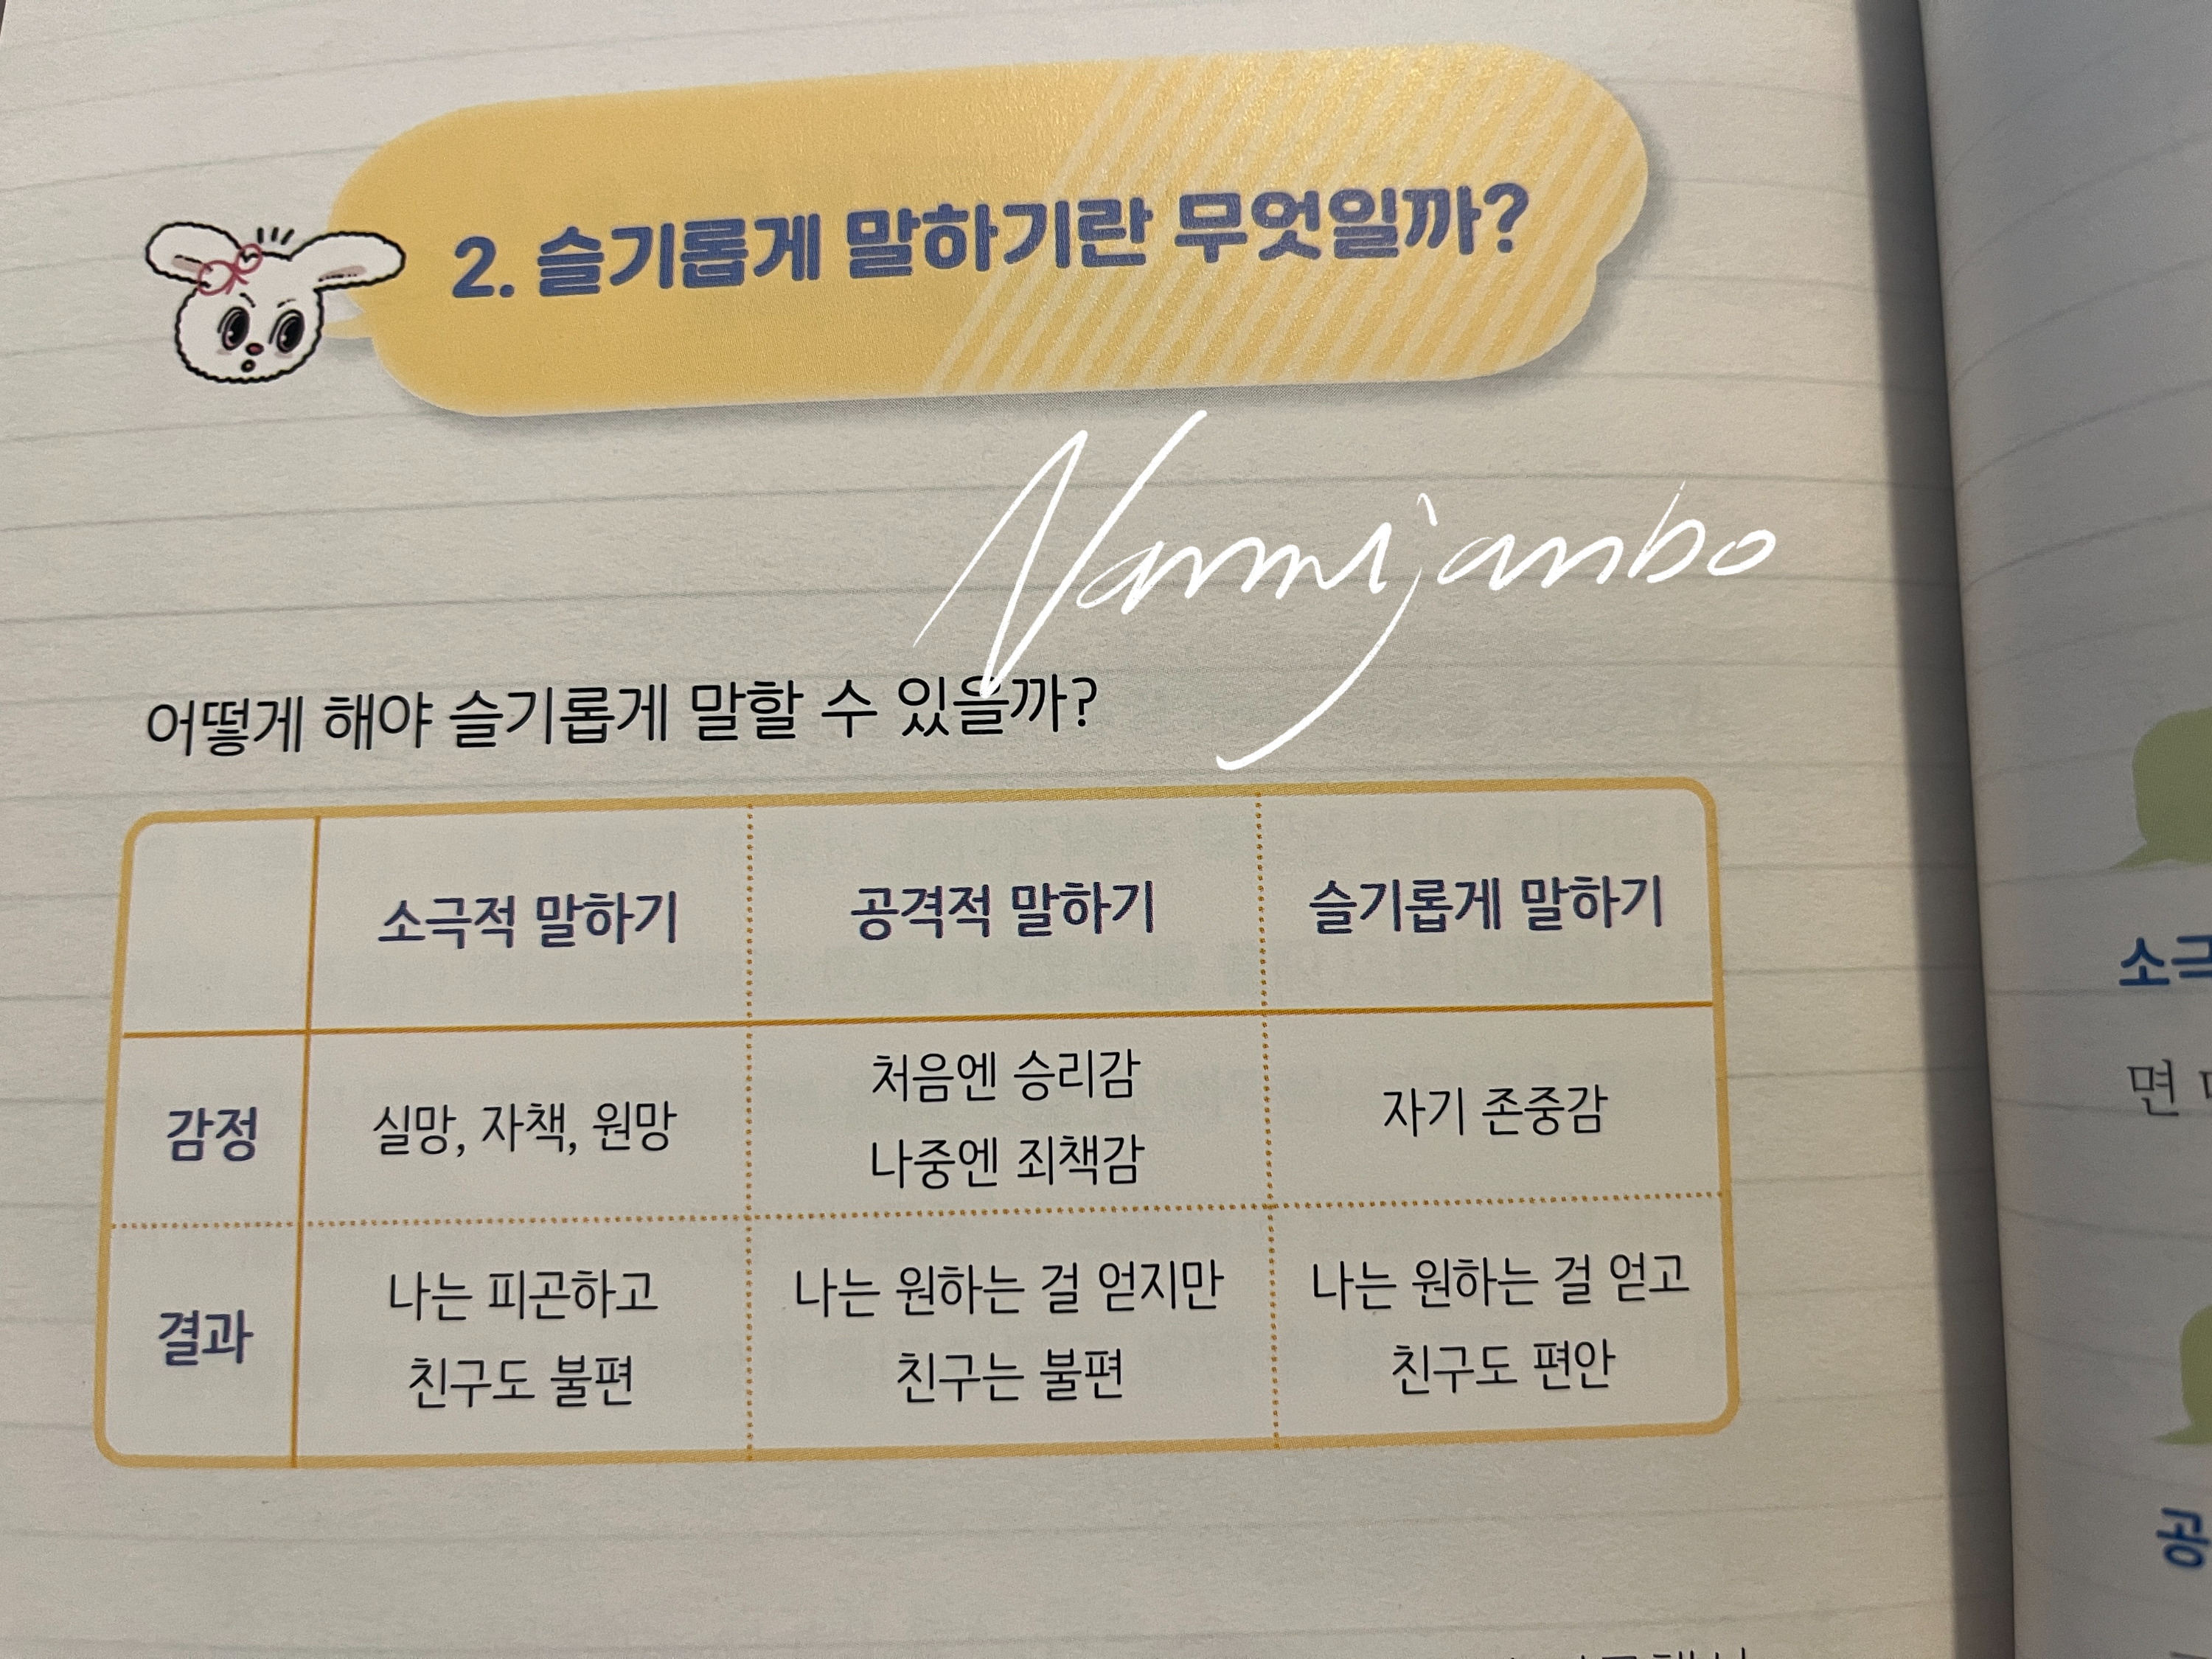 2. 슬기롭게 말하기란 무엇일까?
Nammijanbo
어떻게 해야 슬기롭게 말할 수 있을까?
소극적 말하기
공격적 말하기
슬기롭게 말하기
감정
실망, 자책, 원망
처음엔 승리감
나중엔 죄책감
자기 존중감
결과
나는 피곤하고
친구도 불편
나는 원하는 걸 얻지만
친구는 불편
나는 원하는 걸 얻고
친구도 편안
소극
면
공